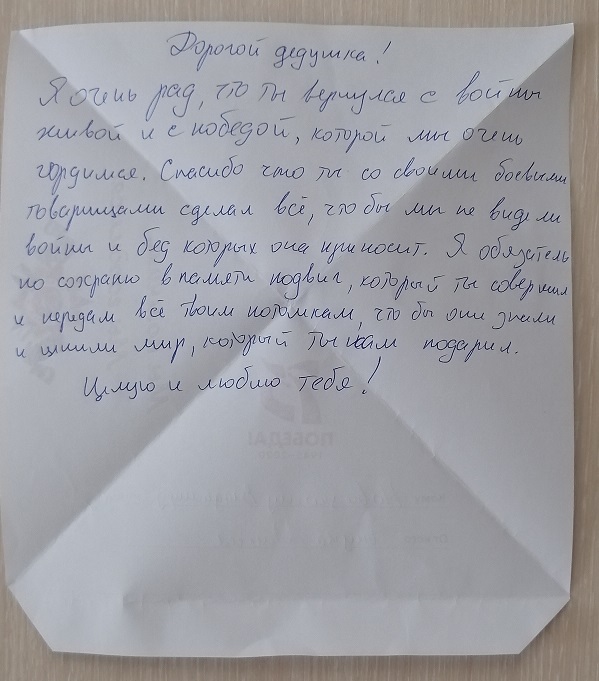 Дорогой дедушка!
Я очень рад, что ты вернулся с войны
живой и с победой, которой мы очень
гордимся. Спасибо что ты со своими боевыми
товарищами сделал всё, что бы мы не видели
войны и бед которых она приносит. Я обязатель
но сохраню в памяти подвиг, который ты совершил
и передам всё твоим потомкам, что бы они знали
и ценили мир, который ты нам подарил.
Целую и люблю тебя!
ПОБЕДА!